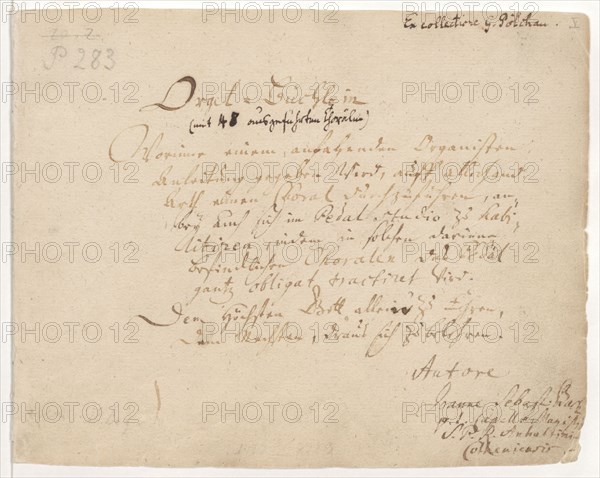 Ex collectione G. Pölchau.
P 283
Orgel-Büchlein
(mit 48 ausgeführten Chorälen)
Worinne einem anfahenden Organisten
Anleitung gegeben wird, auff allerhand
Arth einen Choral durchzuführen, an-
bey auch sich im Pedal studio zu habi-
litiren, indem in solchen darinne
befindlichen Choralen das Pedal
gantz obligat tractiret wird.
Dem Höchsten Gott allein zu Ehren,
Dem Nechsten, draus sich zu belehren.
Autore
Joanne Sebast. Bach
p. t. Capellae Magistro
S. P. R. Anhaltini-
Cotheniensis.
PHOTO 12